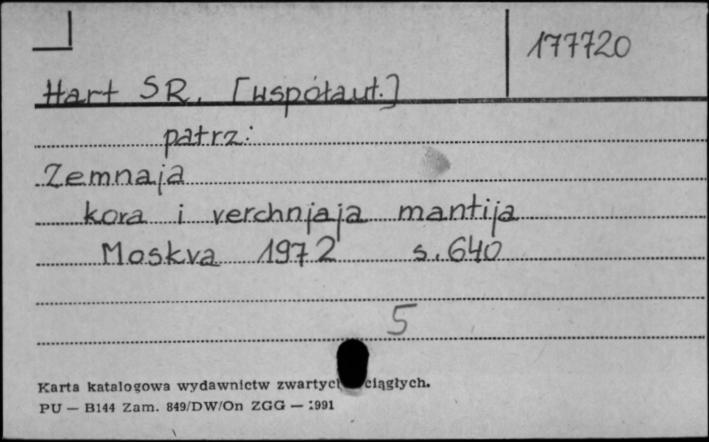 177720
Hart SR. [współaut.]
patrz:
Zemnaja
kora i verchnjaja mantija
Moskva 1972 s. 640
5
Karta katalogowa wydawnictw zwartych ciągłych.
PU — B144 Zam. 849/DW/On ZGG — 1991